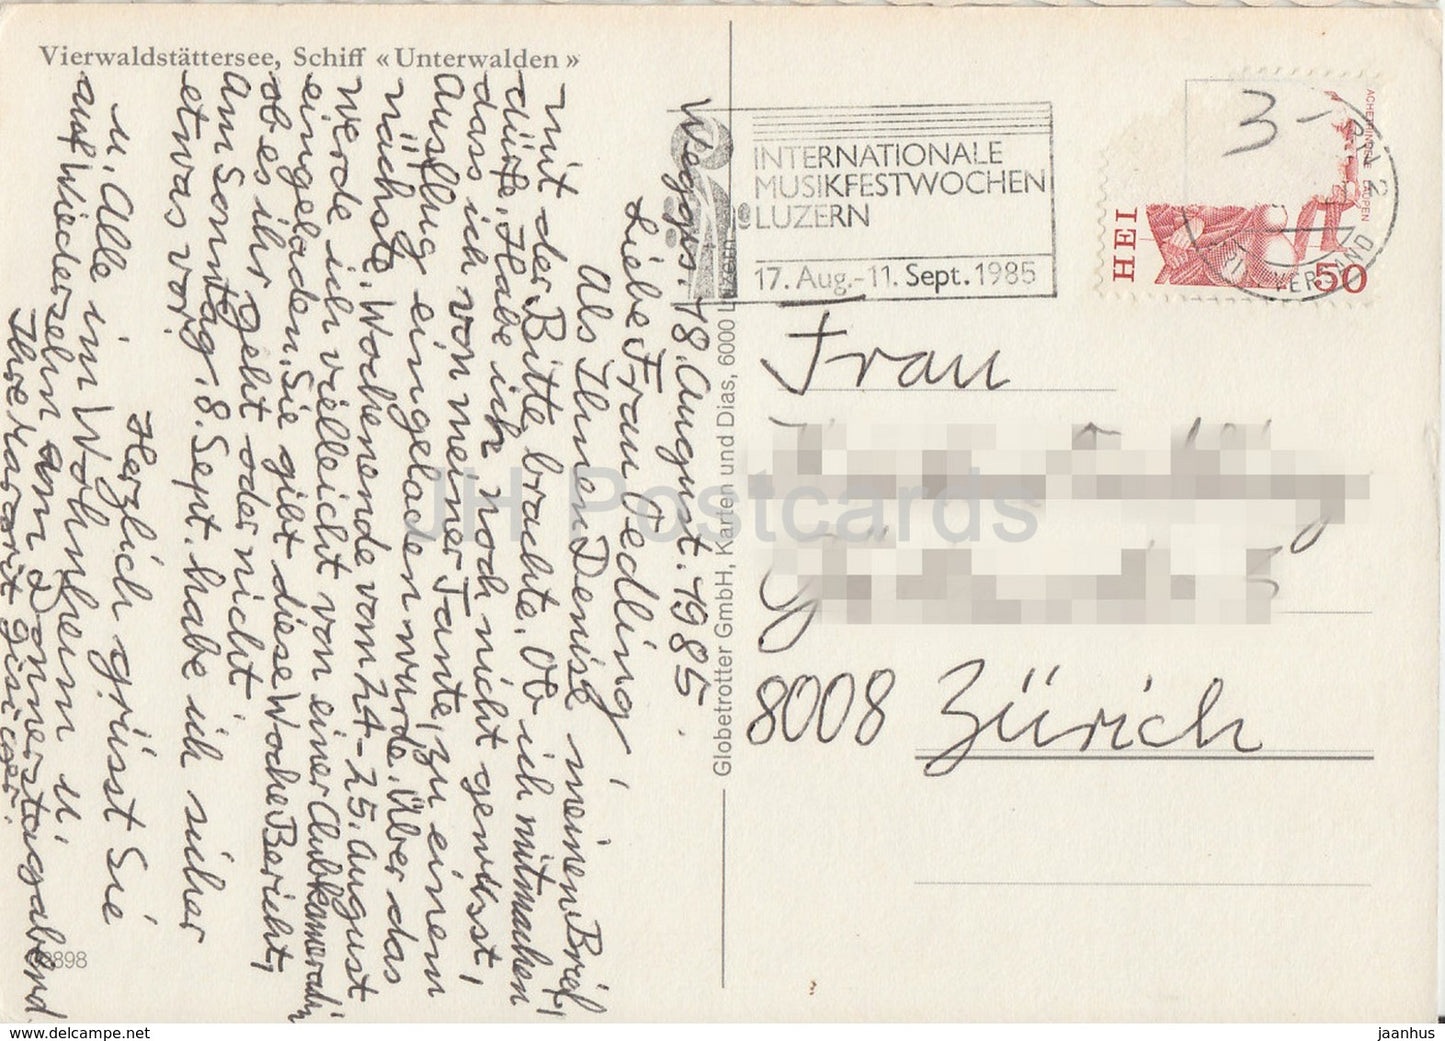 Vierwaldstättersee, Schiff «Unterwalden»
Weggis. 18. August. 1985.
Liebe Frau Oedling!
Als Ihnen Denise meinen Brief,
mit der Bitte brachte. Ob ich mitmachen
dürfte, Habe ich noch nicht gewusst,
dass ich von meiner Tante, zu einem
Ausflug eingeladen wurde. Über das
nächste. Wochenende vom 24-25. August
Werde ich vielleicht von einer Clubkameradin
eingeladen. Sie gibt diese Woche Bericht,
ob es ihr geht oder nicht.
Am Sonntag. 8. Sept. habe ich sicher
etwas vor!
Herzlich grüsst Sie
u, Alle im Wohnheim u.
auf Wiedersehn am Donnerstagabend
Ihre Margrit
02898
Globetrotter GmbH, Karten und Dias, 6000 Luzern
INTERNATIONALE
MUSIKFESTWOCHEN
LUZERN
17. Aug.-11. Sept. 1985
3-
HEI
50
VERSAND
Frau
8008 Zürich
JH Postcards
www.delcampe.net
jaanhus